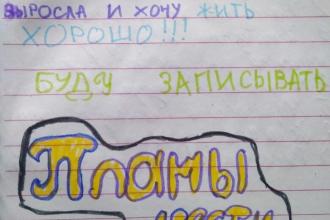 выросла и хочу жить
хорошо!!!
буду записывать
Планы